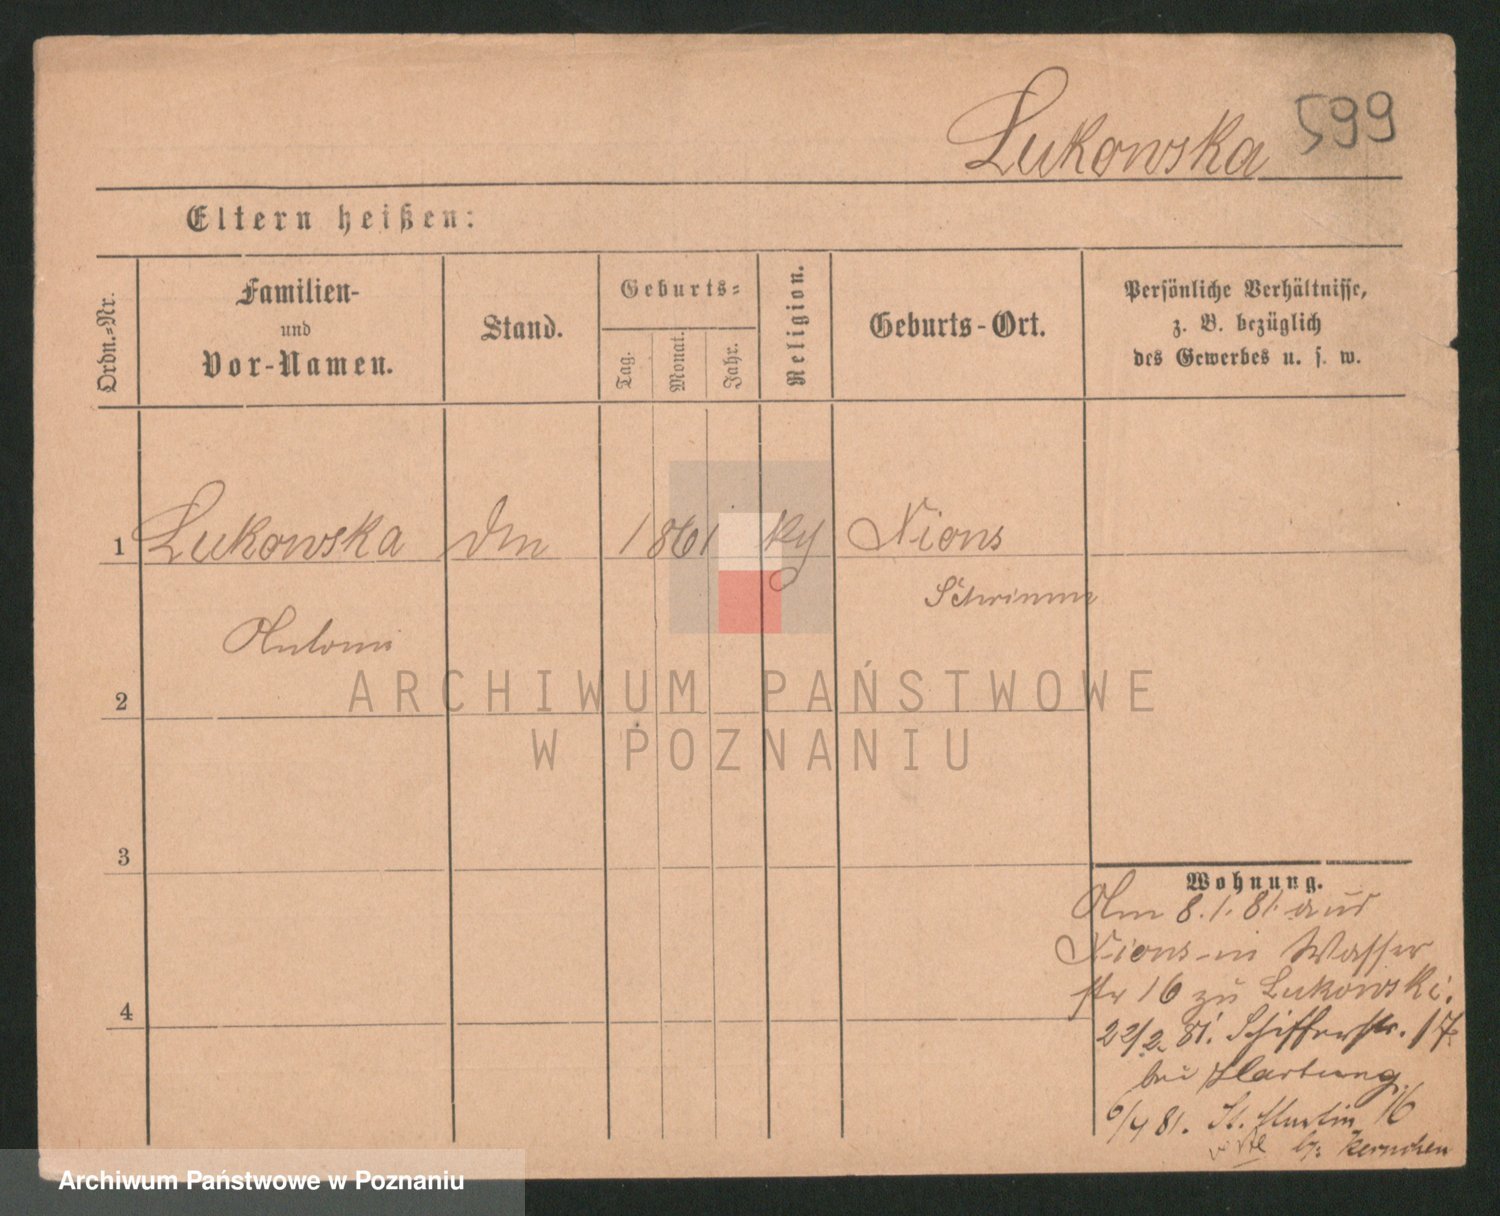 Lukowska 599
Eltern heißen:
Ordn.-Nr.
Familien-
und
Vor-Namen.
Stand.
Geburts-
Tag.
Monat.
Jahr.
Religion.
Geburts-Ort.
Persönliche Verhältnisse,
z. B. bezüglich
des Gewerbes u. s. w.
1 Lukowska 1861 Xions
Schrimm
Antoni
2
3
4
Wohnung.
Am 8.1.81. aus
Xions in Wasser
str 16 zu Lukowski.
22/2 81. Schifferstr. 17.
bei Hartung
6/4 81. St. Martin 16
ARCHIWUM PAŃSTWOWE
W POZNANIU
Archiwum Państwowe w Poznaniu